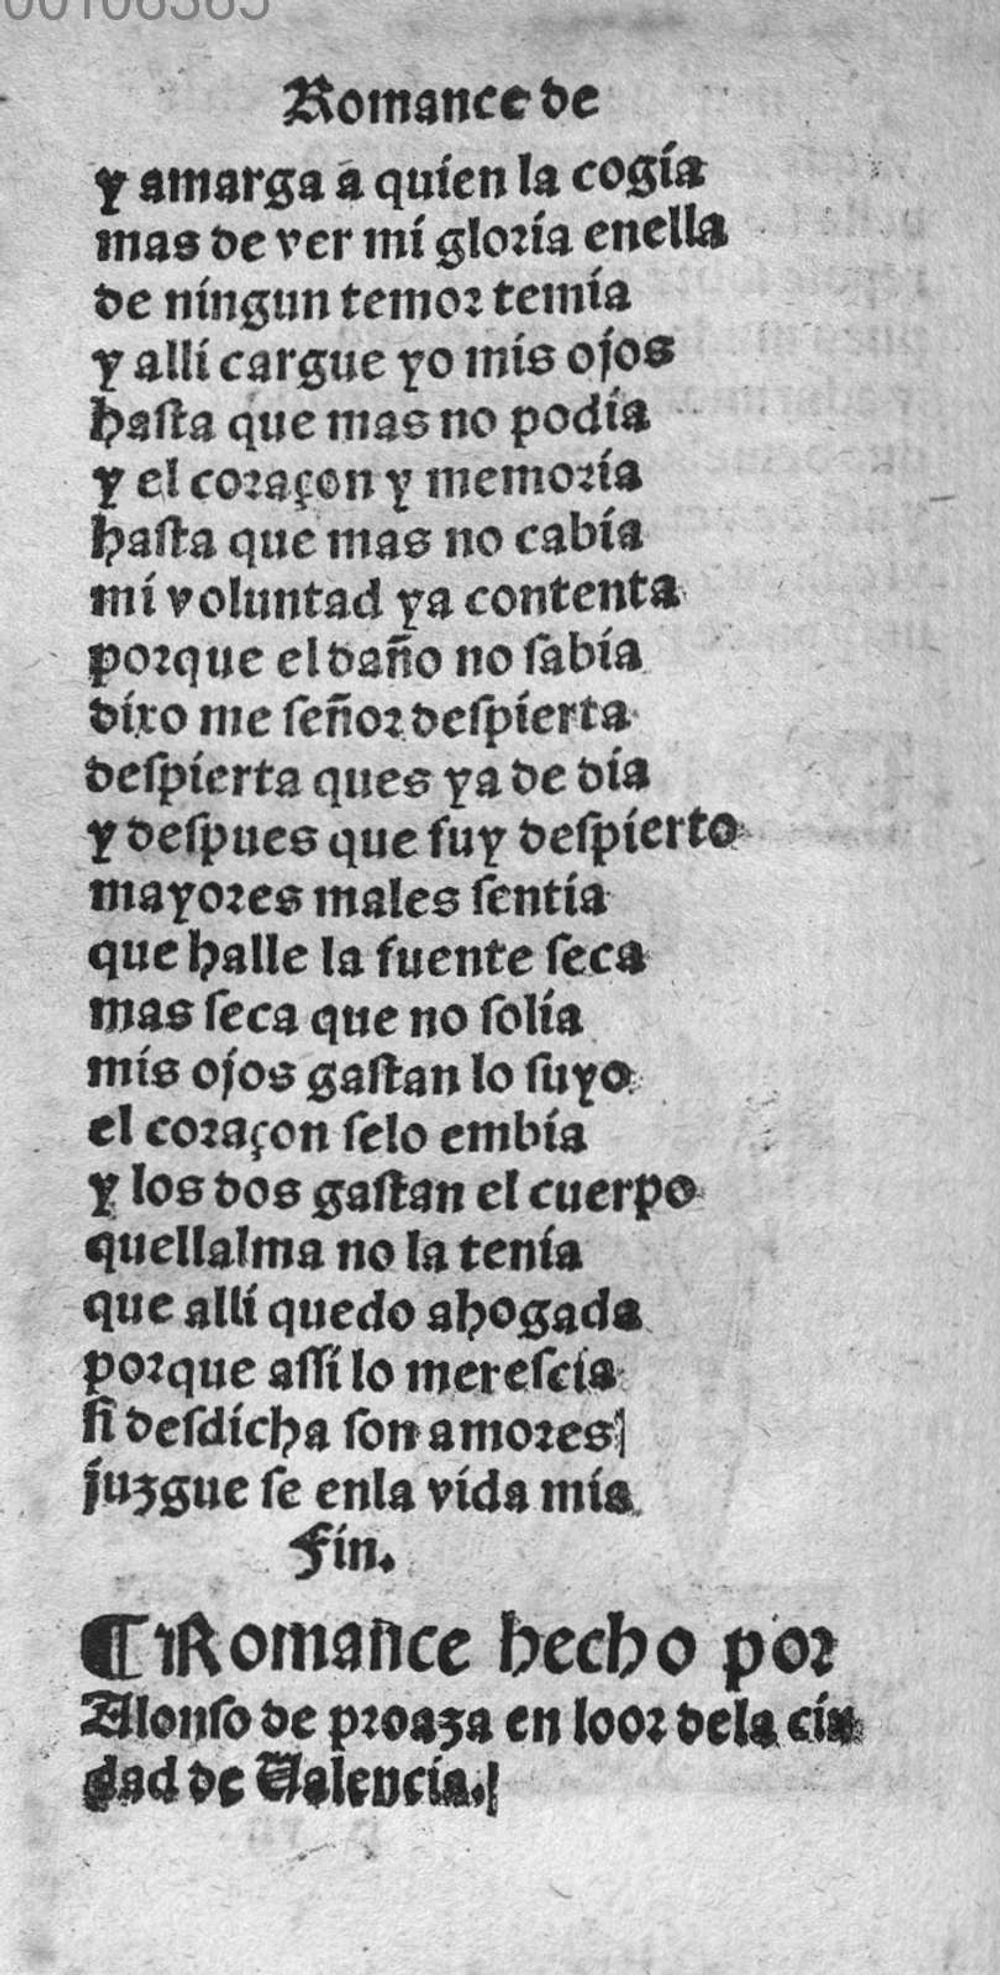 00106385
Romance de
y amarga a quien la cogia
mas de ver mi gloria enella
de ningun temor temia
y alli cargue yo mis ojos
hasta que mas no podia
y el coraçon y memoria
hasta que mas no cabia
mi voluntad ya contenta
porque el daño no sabia
dixo me señor despierta
despierta ques ya de dia
y despues que fuy despierto
mayores males sentia
que halle la fuente seca
mas seca que no solia
mis ojos gastan lo suyo
el coraçon selo embia
y los dos gastan el cuerpo
quellalma no la tenia
que alli quedo ahogada
porque assi lo merescia
si desdicha son amores
juzgue se enla vida mia
Fin.
¶ Romance hecho por
Alonso de proaza en loor dela ciu
dad de Valencia.